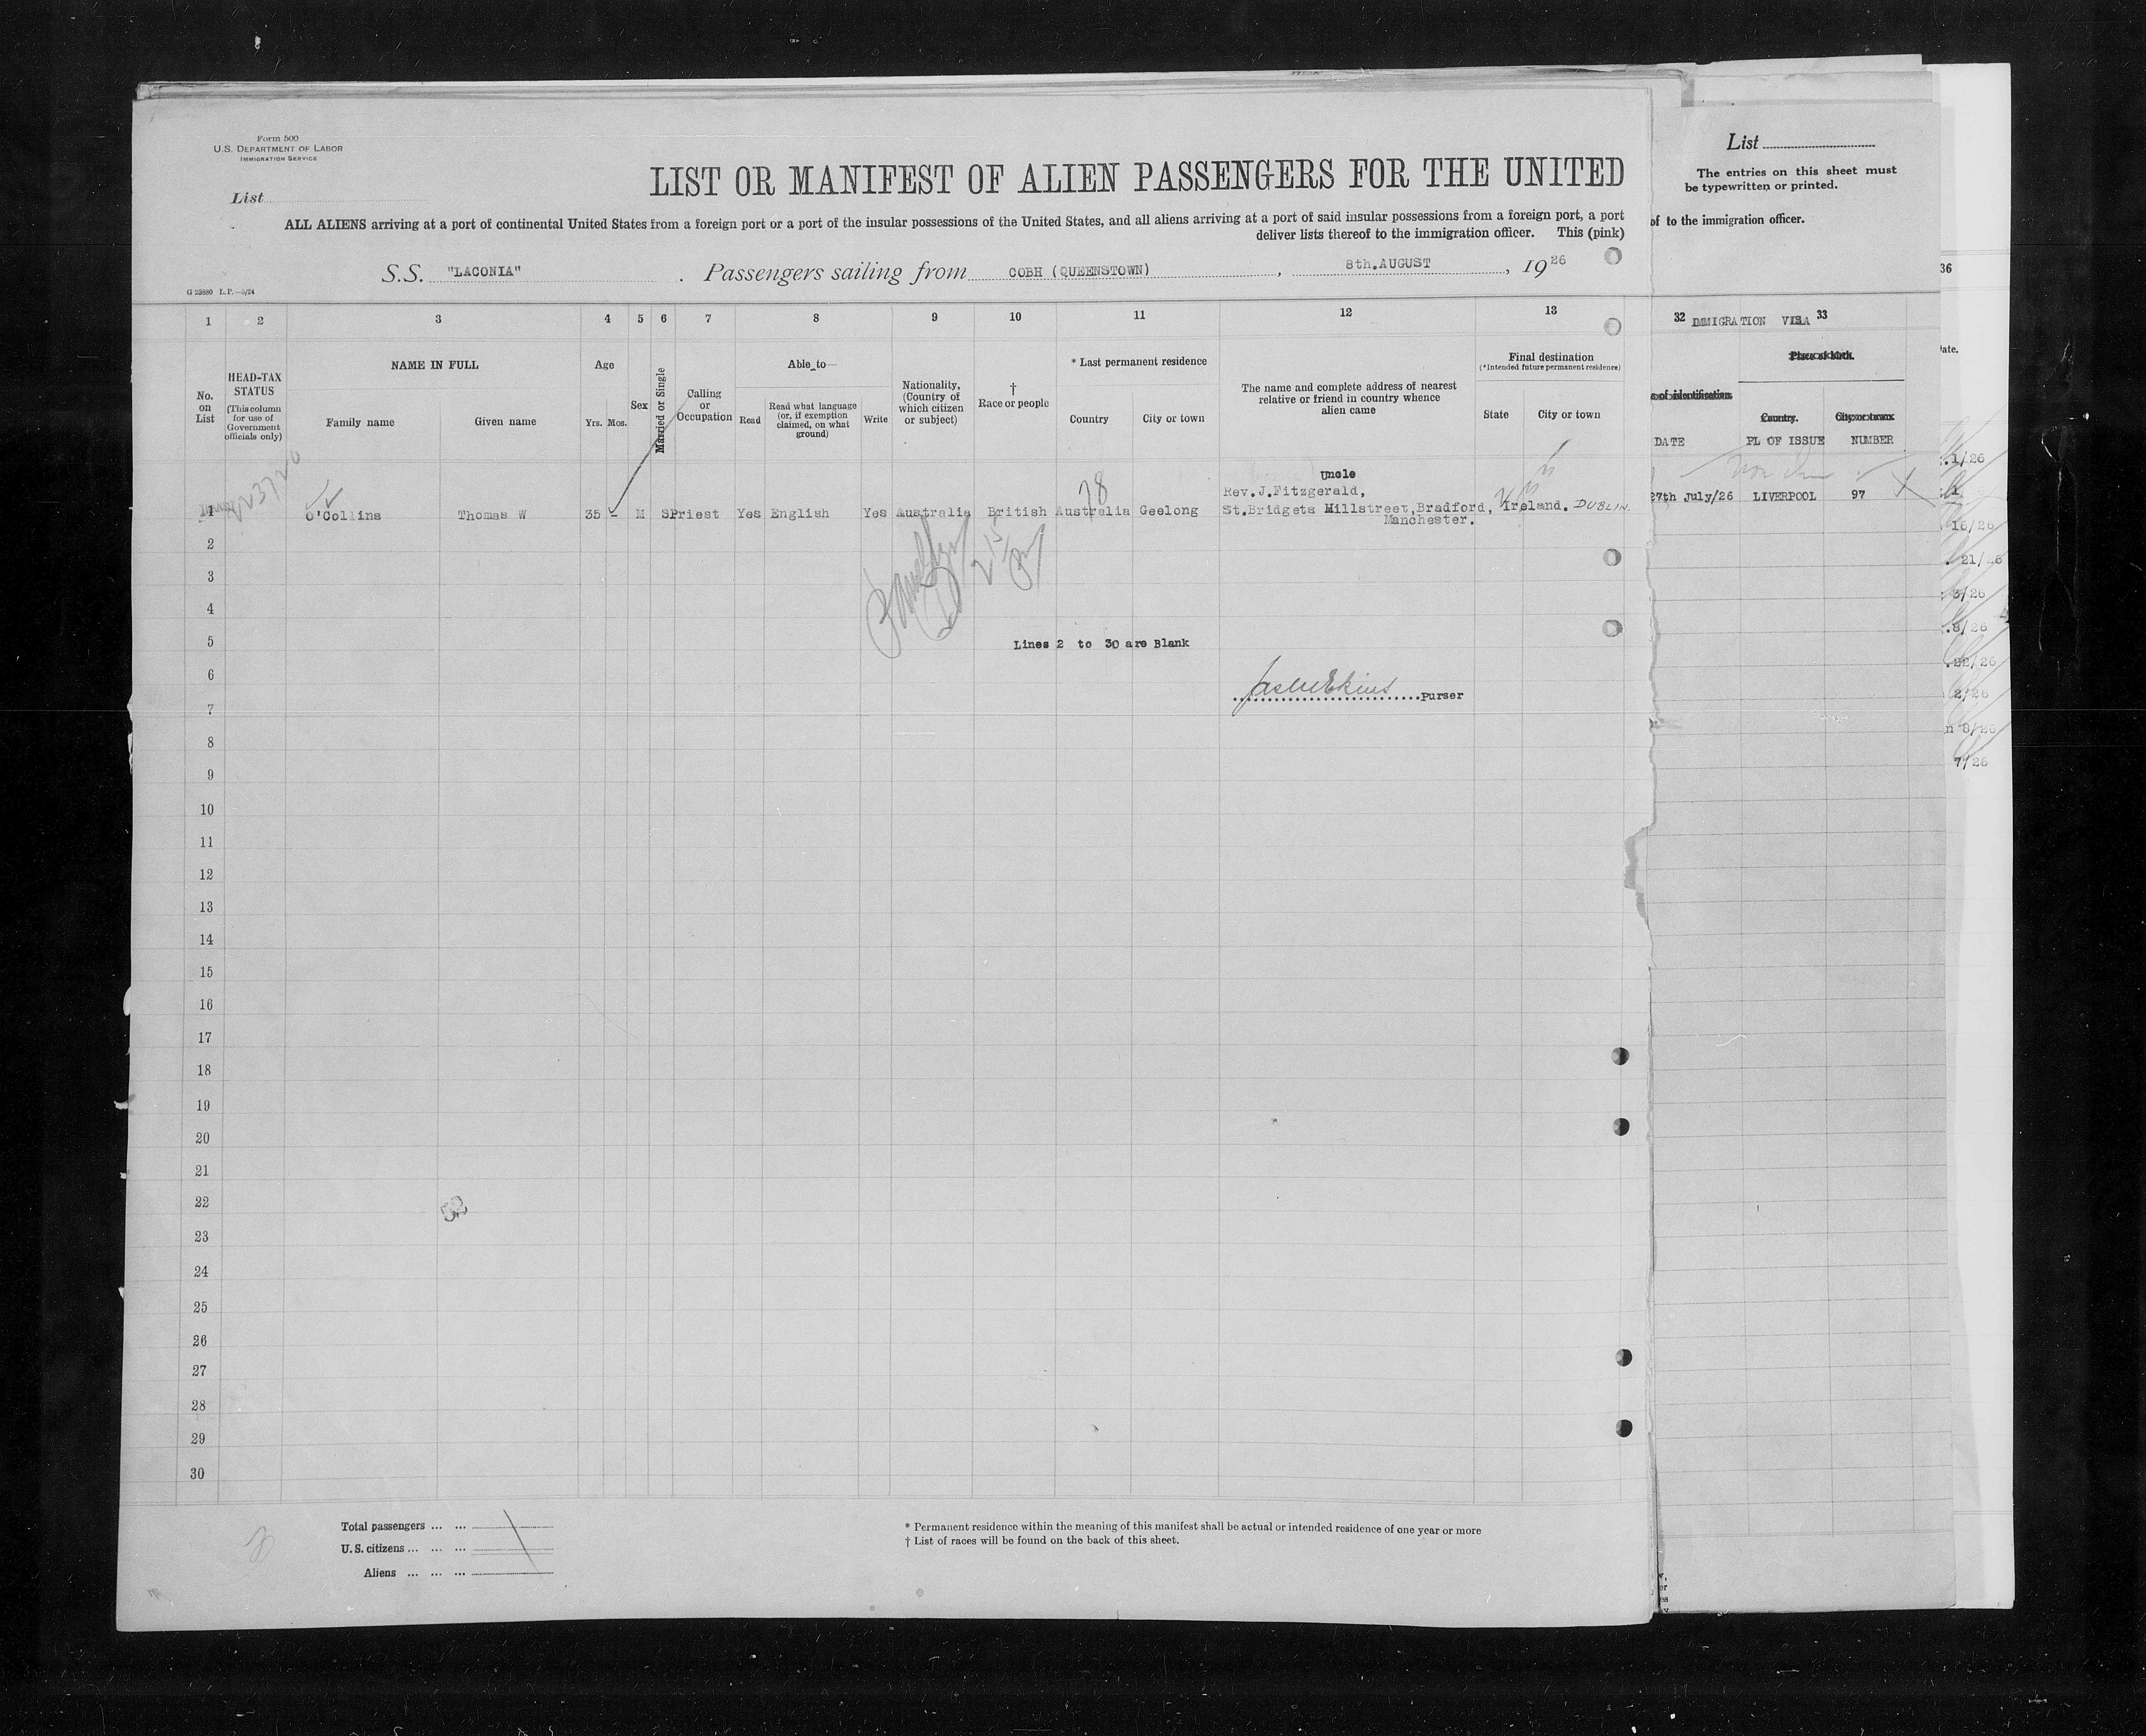 Form 500
U.S. DEPARTMENT OF LABOR
IMMIGRATION SERVICE
List
LIST OR MANIFEST OF ALIEN PASSENGERS FOR THE UNITED
ALL ALIENS arriving at a port of continental United States from a foreign port or a port of the insular possessions of the United States, and all aliens arriving at a port of said insular possessions from a foreign port, a port
deliver lists thereof to the immigration officer. This (pink)
S.S. "LACONIA" . Passengers sailing from COBH (QUEENSTOWN) , 8th.AUGUST , 1926
G 23880 L.P.—5/24
1 2 3 4 5 6 7 8 9 10 11 12 13
No. on List
HEAD-TAX STATUS
(This column for use of Government officials only)
NAME IN FULL
Family name Given name
Age
Yrs. Mos.
Sex
Married or Single
Calling or Occupation
Able to
Read
Read what language (or, if exemption claimed, on what ground)
Write
Nationality, (Country of which citizen or subject)
† Race or people
* Last permanent residence
Country City or town
The name and complete address of nearest relative or friend in country whence alien came
Final destination
(*Intended future permanent residence)
State City or town
Uncle
78
Rev.J.Fitzgerald,
1 O'Collins Thomas W 35 - M S Priest Yes English Yes Australia British Australia Geelong St.Bridgets Millstreet,Bradford, Ireland. DUBLIN.
Manchester.
2
3
4
5
Lines 2 to 30 are Blank
6
Purser
7
8
9
10
11
12
13
14
15
16
17
18
19
20
21
22
23
24
25
26
27
28
29
30
Total passengers ... ...
U.S. citizens ... ... ...
Aliens ... ... ...
* Permanent residence within the meaning of this manifest shall be actual or intended residence of one year or more
† List of races will be found on the back of this sheet.
List
The entries on this sheet must
be typewritten or printed.
of to the immigration officer.
32 IMMIGRATION VISA 33
DATE PL OF ISSUE NUMBER
27th July/26 LIVERPOOL 97
36
Date.
.1/26
16/26
21/26
3/26
.8/26
.22/26
2/26
n 8/26
7/26